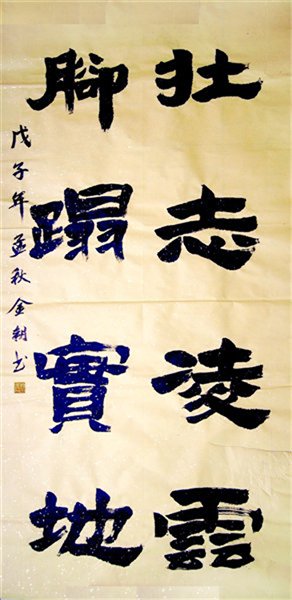 壮志凌雲
腳蹋實地
戊子年孟秋金朝书